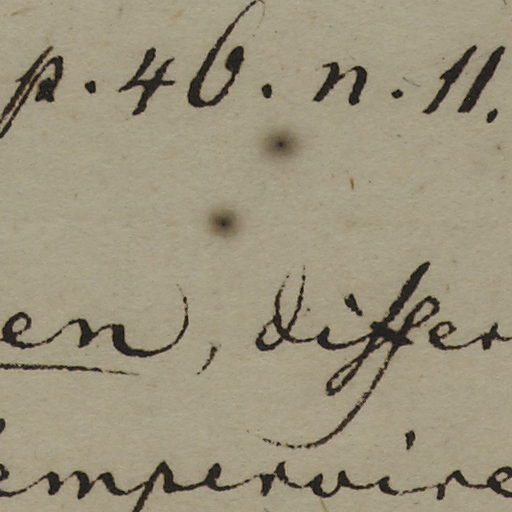 p. 46. n. 11.
en, differ
sempervire